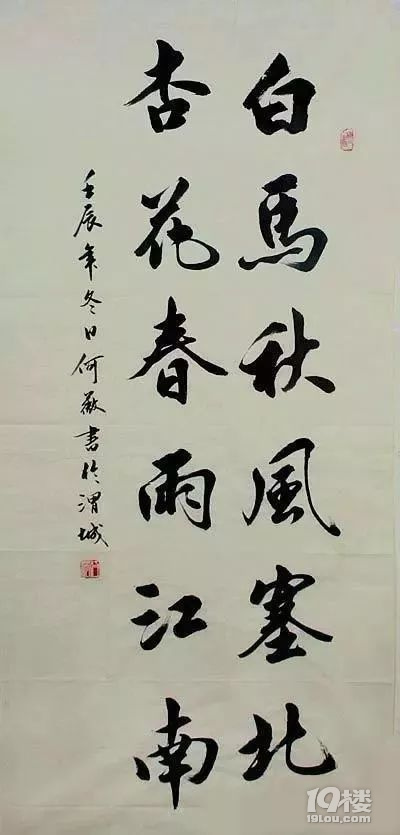 白馬秋風塞北
杏花春雨江南
壬辰年冬日何敬書於渭城
19楼
19lou.com